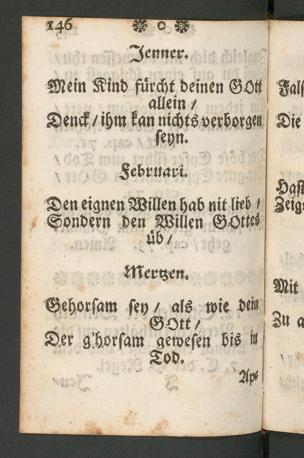 146
Jenner.
Mein Kind fürcht deinen GOtt
allein /
Denck / ihm kan nichts verborgen
seyn.
Februari.
Den eignen Willen hab nit lieb /
Sondern den Willen GOttes
üb /
Mertzen.
Gehorsam sey / als wie dein
GOtt /
Der g'horsam gewesen bis in
Tod.
Ap-
Die
Mit
Zu